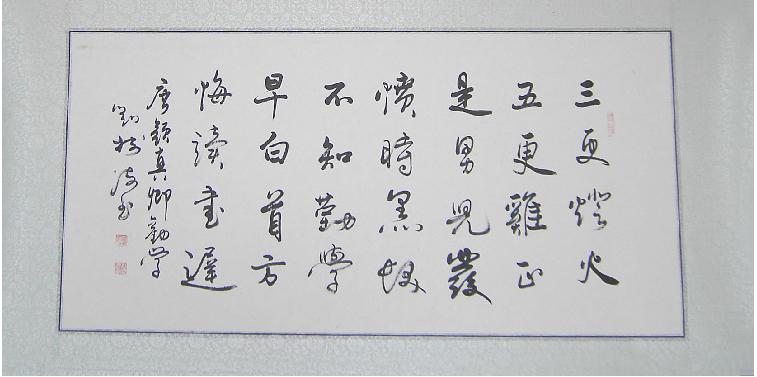 三更燈火
五更雞正
是男兒發
憤時黑髮
不知勤學
早白首方
悔讀書遲
唐顏真卿勸學
劉書